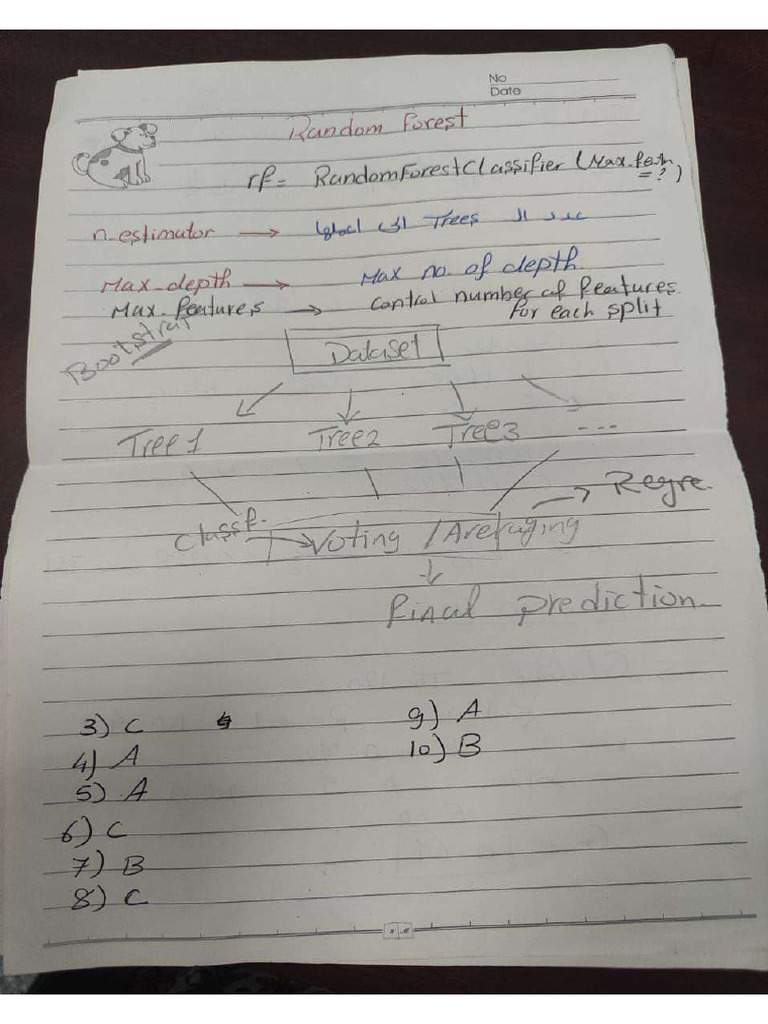 No
Date
Random Forest
rf = RandomForestClassifier (Max-featu = ?)
n-estimator → عدد الـ Trees اللى
Max-depth → Max no. of depth
Max-features → control number of features for each split
Bootstrap
Dataset
Tree1 Tree2 Tree3 ---
→ Regre.
Classf. → Voting / Averaging
Final prediction
3) C 9) A
4) A 10) B
5) A
6) C
7) B
8) C